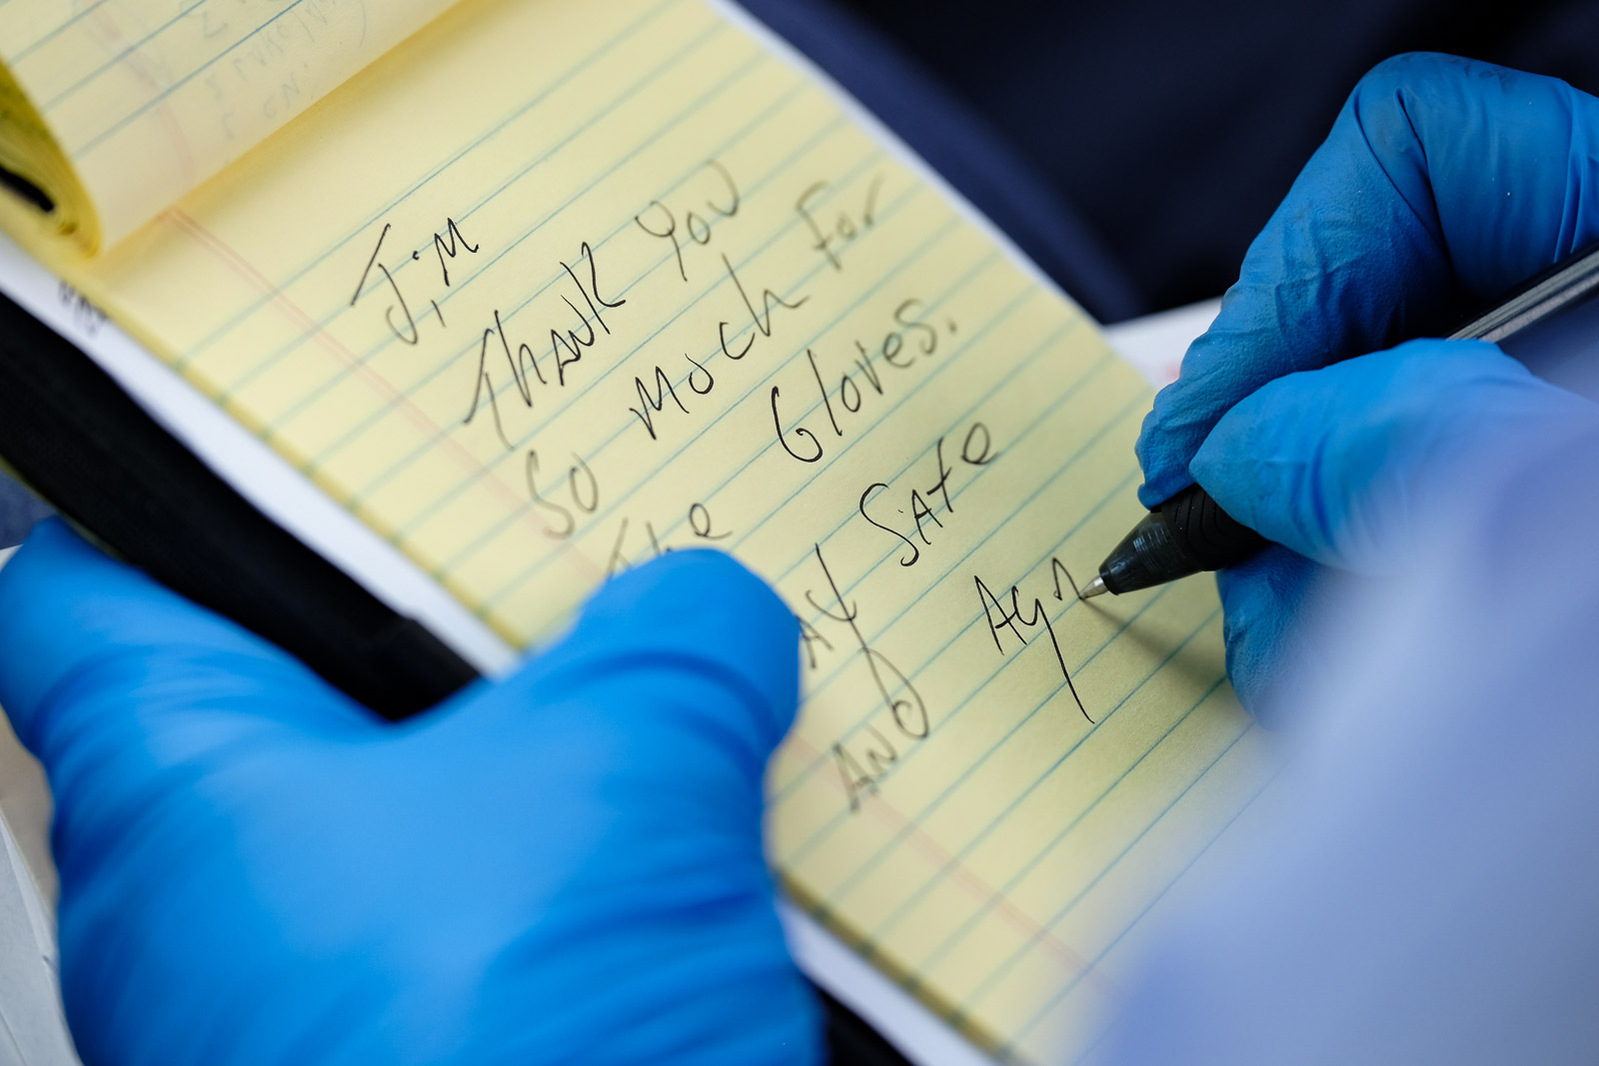 Jim
Thank You
So Much For
The Gloves.
ay Safe
And